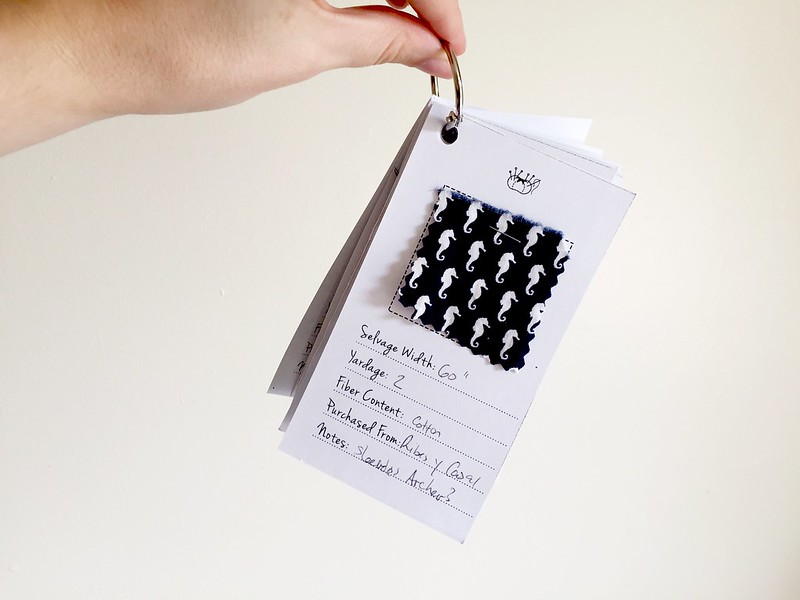 Selvage Width: 60"
Yardage: 2
Fiber Content: cotton
Purchased From: Ribes y Casal
Notes: Archer?